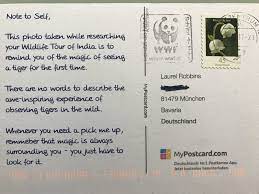 Note to Self,
This photo taken while researching
your Wildlife Tour of India is to
remind you of the magic of seeing
a tiger for the first time.
There are no words to describe the
awe-inspiring experience of
observing tigers in the wild.
Whenever you need a pick me up,
remember that magic is always
surrounding you - you just have to
look for it.
MyPostcard.com
WWF
Laurel Robbins
81479 München
Bavaria
Deutschland
MyPostcard.com
Deutschlands Nr.1 Postkarten App